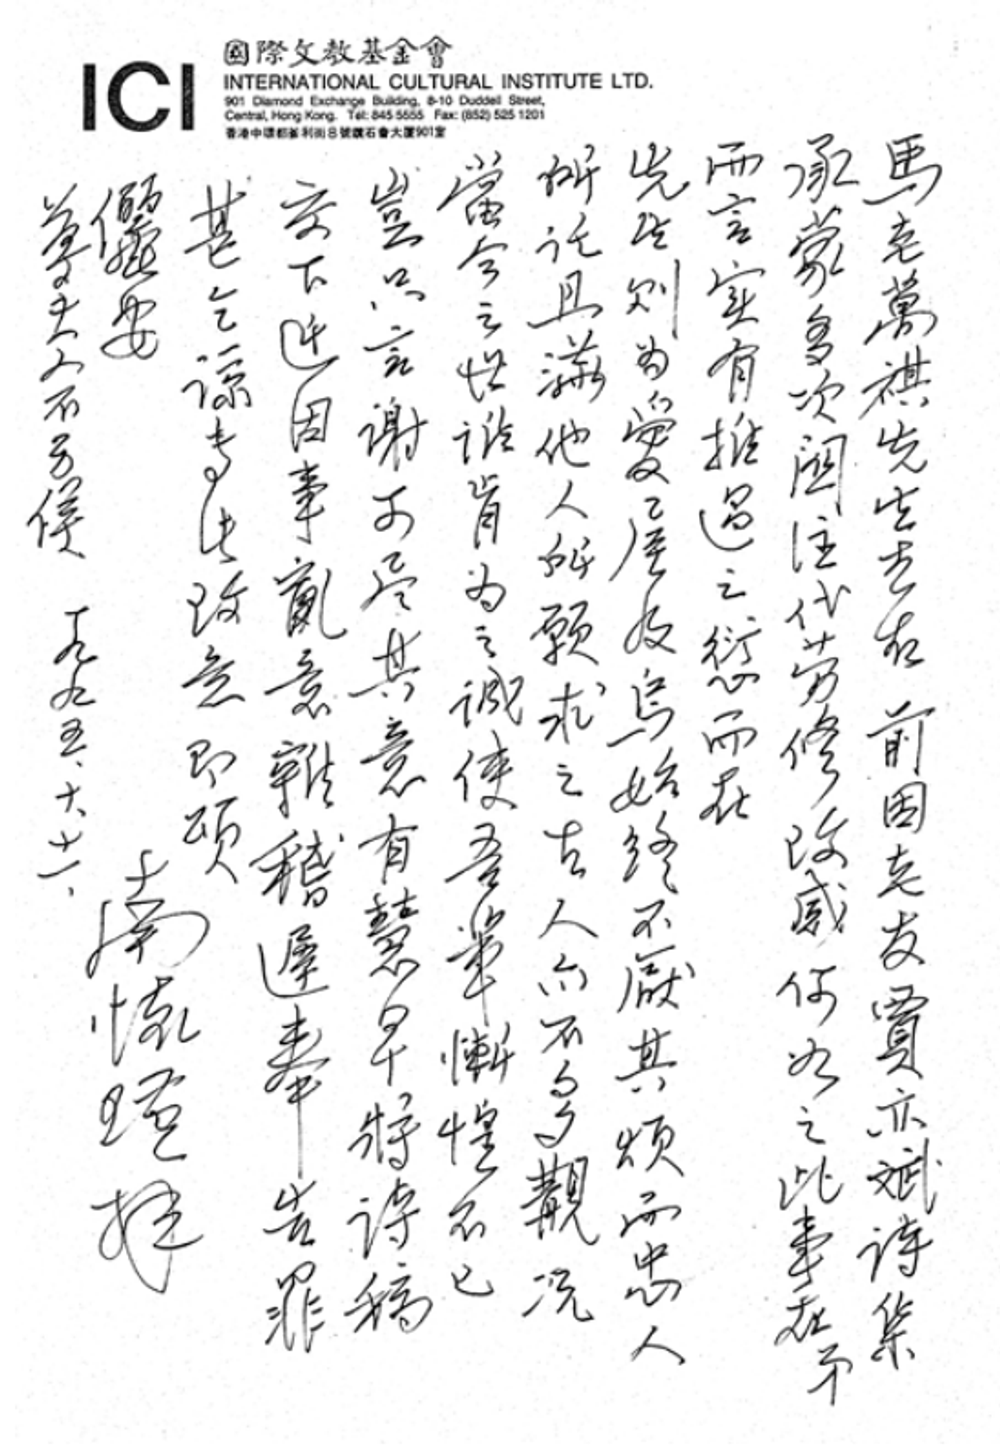 ICI
國際文教基金會
INTERNATIONAL CULTURAL INSTITUTE LTD.
901 Diamond Exchange Building, 8-10 Duddell Street,
Central, Hong Kong. Tel: 845 5555 Fax: (852) 525 1201
香港中環都爹利街8號鑽石會大廈901室
馬克萬祺先生左右 前因老友賈亦斌詩集
承蒙多次關注代勞修改感何如之此事在弟
而言实有推過之愆而在
先生则为愛屋及烏始終不厭其煩而忠人
所託且满他人所願求之古人亦不多觀况
當今之世誰肯为之诚使吾輩慚惶不已
豈只言謝可尽其意有慧早將诗稿
交下近因事亂意雜稽遲奉告罪
甚乞諒专此致意 即頌
儷安
尊夫人不另候
南懷瑾拜
一九九五、十、十一、